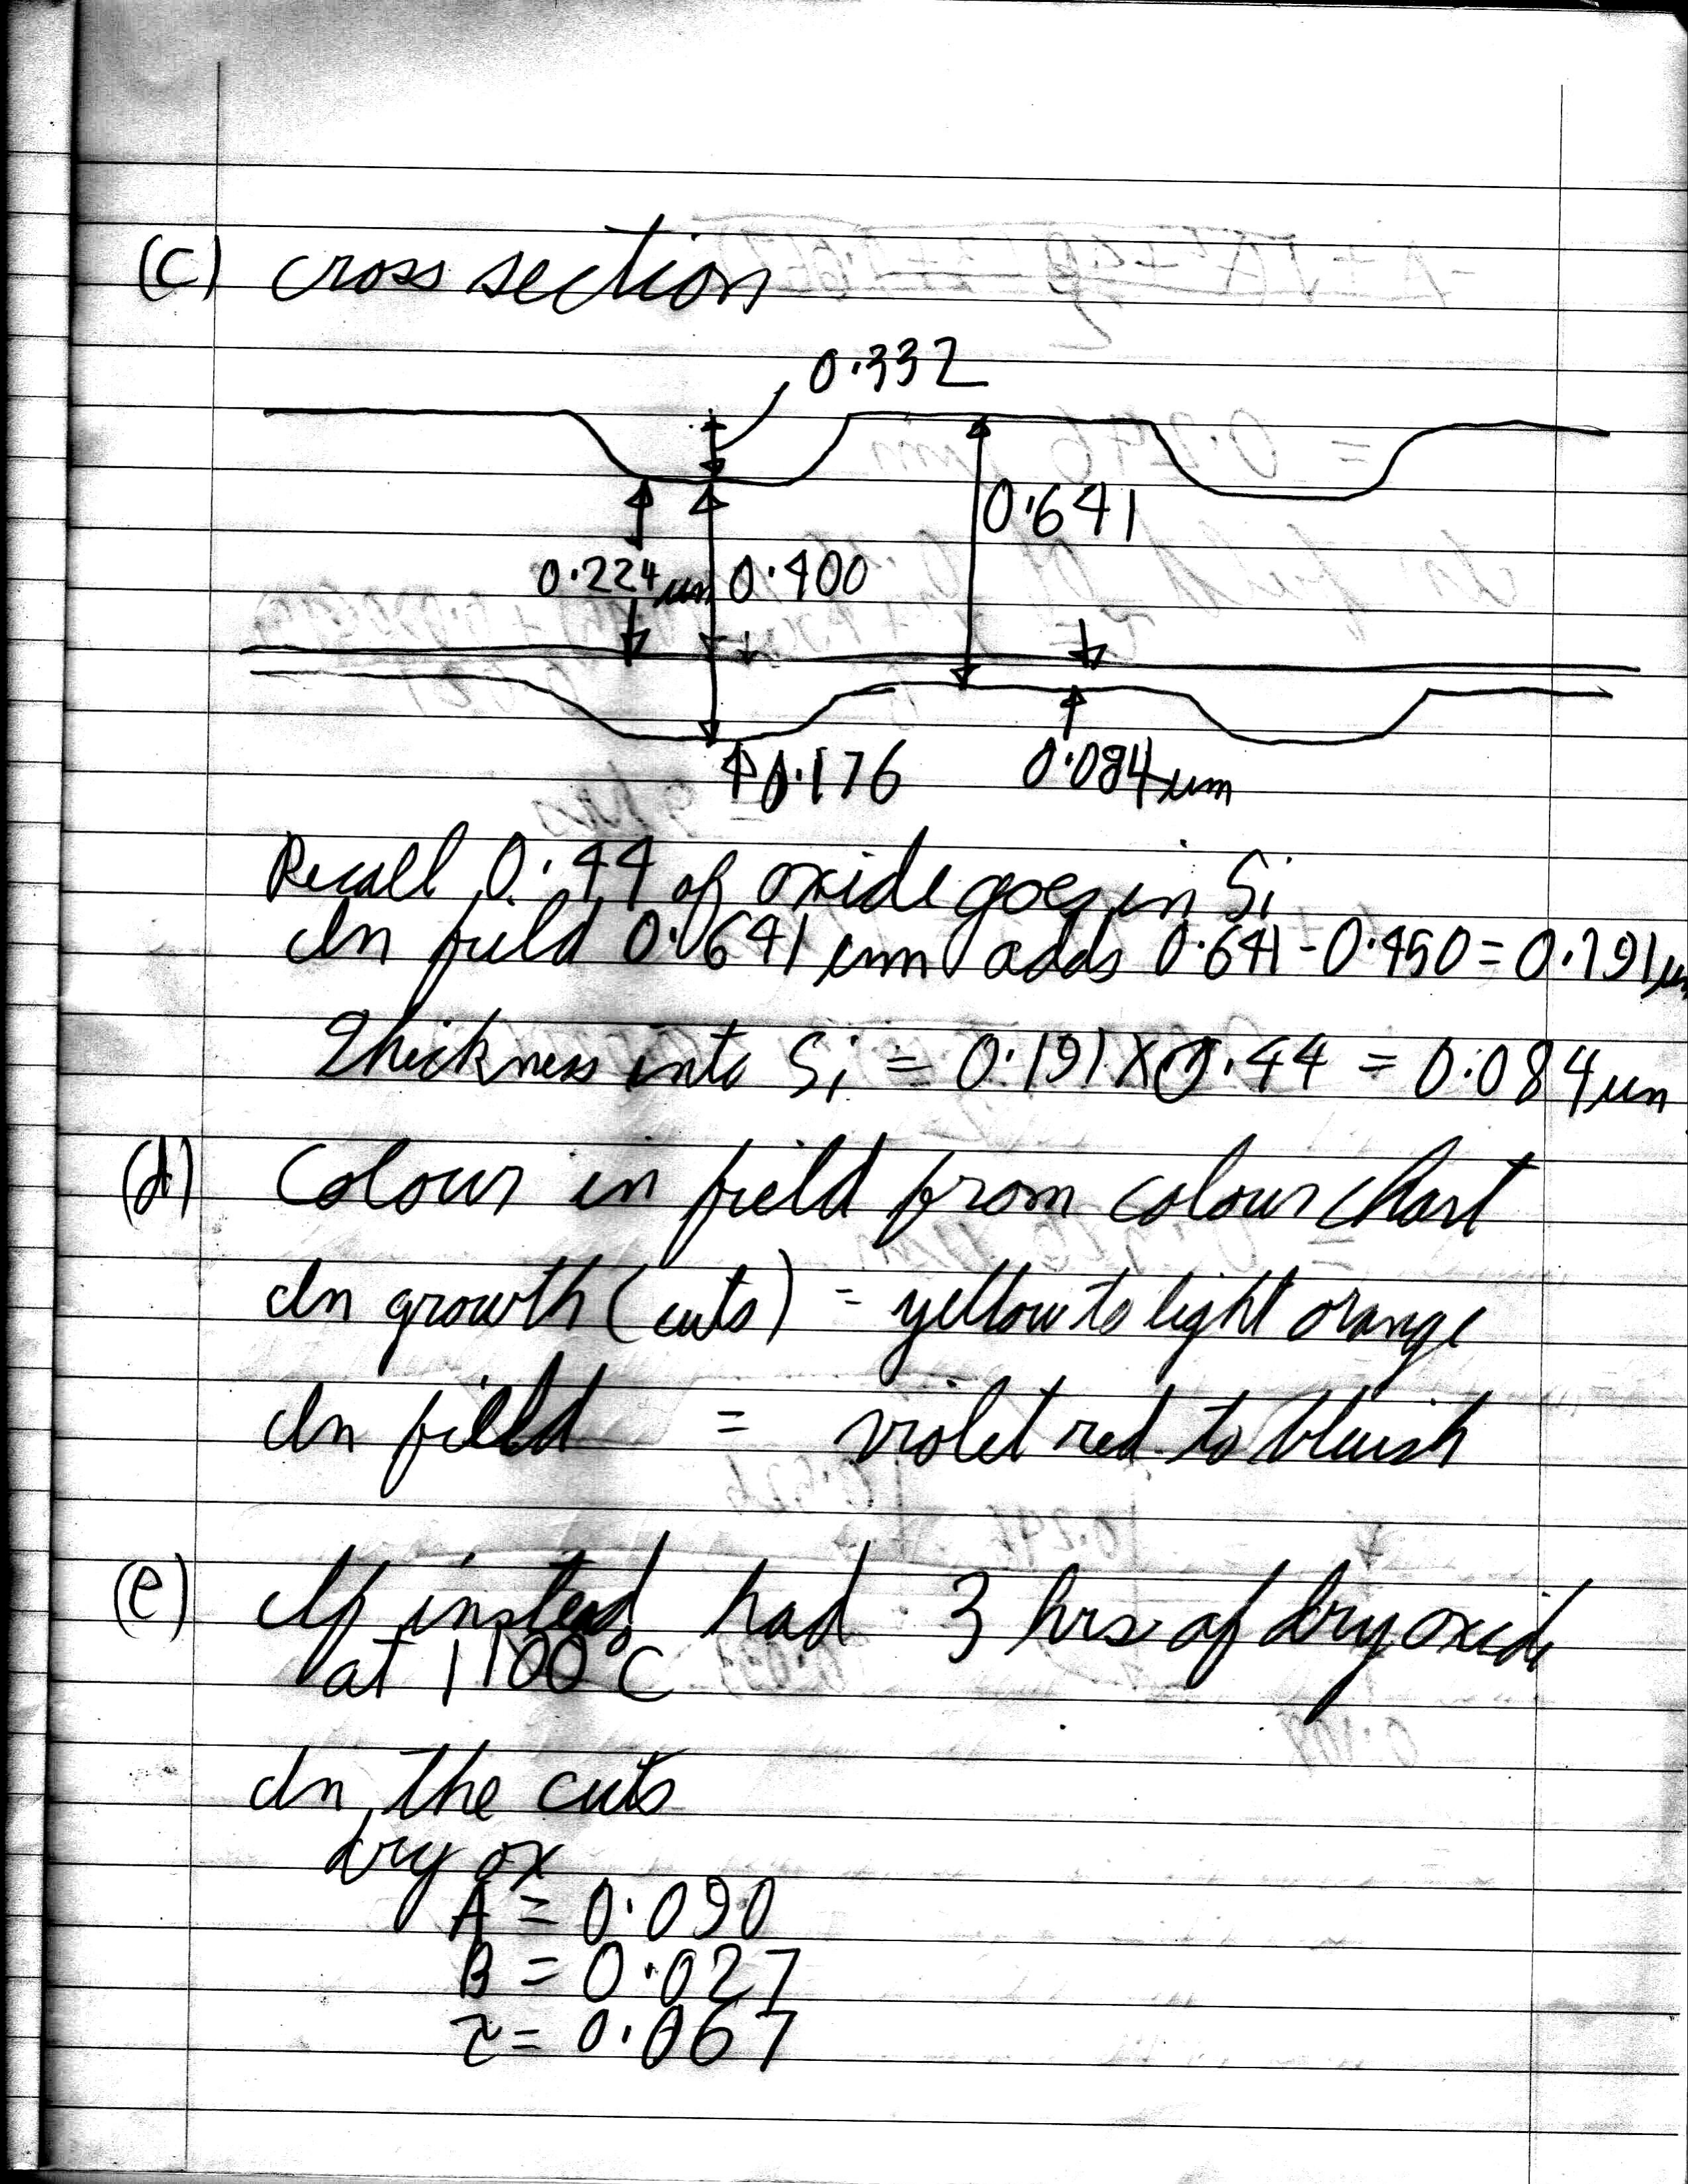 (c) cross section
0.332
0.641
0.224 um 0.400
0.176 0.084 um
Recall 0.44 of oxide goes in Si
In field 0.641 um adds 0.641 - 0.450 = 0.191 um
Thickness into Si = 0.191 X 0.44 = 0.084 um
(d) Colour in field from colour chart
In growth (cuts) = yellow to light orange
In field = violet red to bluish
(e) If instead had 3 hrs of dry oxide
at 1100°C
In the cuts
dry ox
A = 0.090
B = 0.027
τ = 0.067